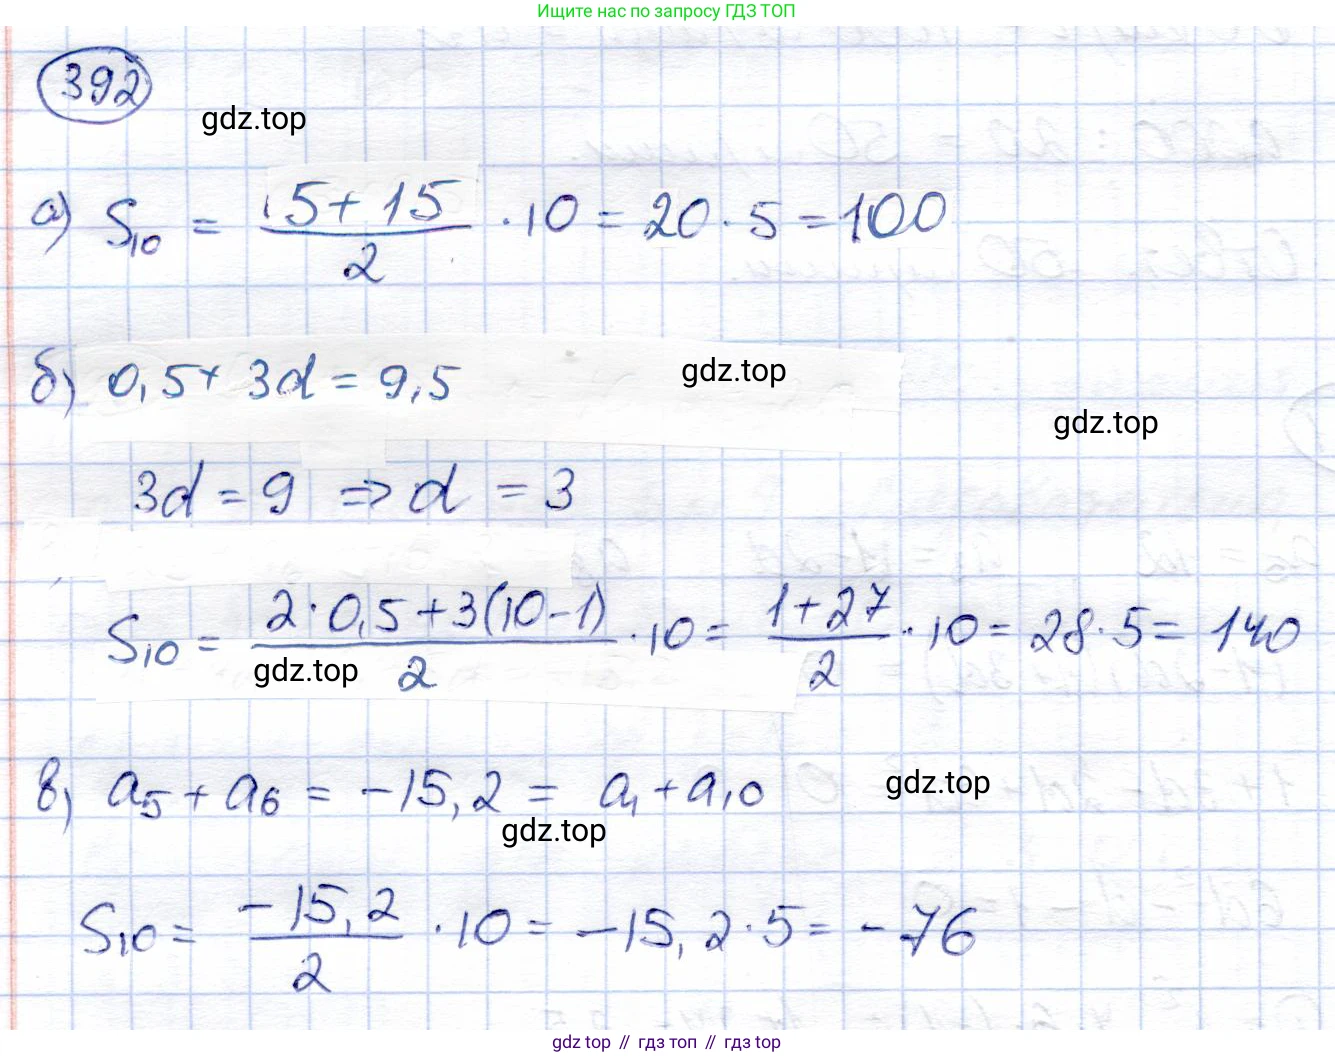 Ищите нас по запросу ГДЗ ТОП
392
gdz.top
а) S₁₀ = (5 + 15)/2 · 10 = 20 · 5 = 100
б) 0,5 + 3d = 9,5
gdz.top
gdz.top
3d = 9 ⇒ d = 3
S₁₀ = (2 · 0,5 + 3(10 - 1))/2 · 10 = (1 + 27)/2 · 10 = 28 · 5 = 140
gdz.top
в) a₅ + a₆ = -15,2 = a₁ + a₁₀
gdz.top
gdz.top
S₁₀ = (-15,2)/2 · 10 = -15,2 · 5 = -76
gdz top // гдз топ // гдз top